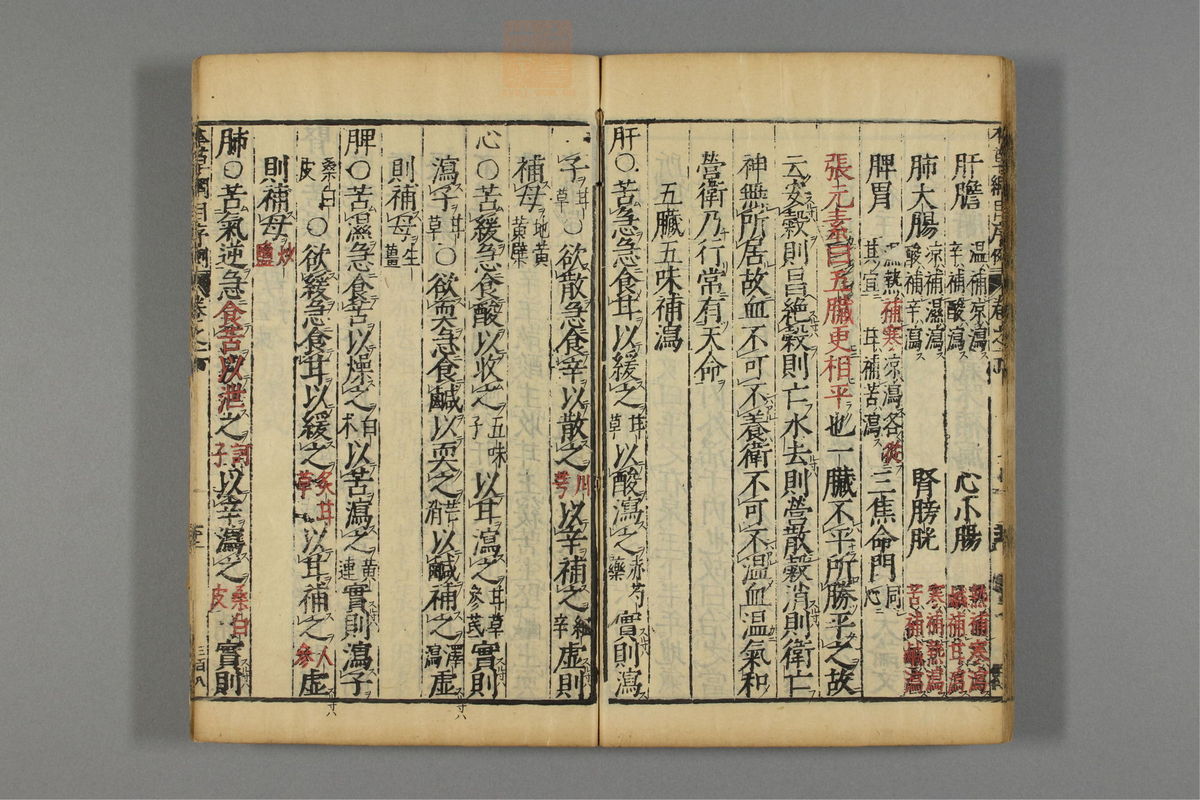 肝膽 溫補涼瀉 辛補酸瀉 心小腸 熱補寒瀉 鹹補甘瀉
肺大腸 涼補溫瀉 酸補辛瀉 腎膀胱 寒補熱瀉 苦補鹹瀉
脾胃 溫熱補寒涼瀉各從其宜 甘補苦瀉 三焦命門 同心
張元素曰五臟更相平也一臟不平所勝平之故
云安穀則昌絶穀則亡水去則營散穀消則衛亡
神無所居故血不可不養衛不可不溫血溫氣和
營衛乃行常有天命
五臟五味補瀉
肝○苦急急食甘以緩之甘草以酸瀉之赤芍藥實則瀉
子甘草○欲散急食辛以散之川芎以辛補之細辛虛則
補母地黃黃檗
心○苦緩急食酸以收之五味子以甘瀉之甘草參芪實則
瀉子甘草○欲耎急食鹹以耎之芒消以鹹補之澤瀉虛
則補母生薑
脾○苦濕急食苦以燥之白朮以苦瀉之黃連實則瀉子
桑白皮○欲緩急食甘以緩之炙甘草以甘補之人參虛
則補母炒鹽
肺○苦氣逆急食苦以泄之訶子以辛瀉之桑白皮實則
三百八